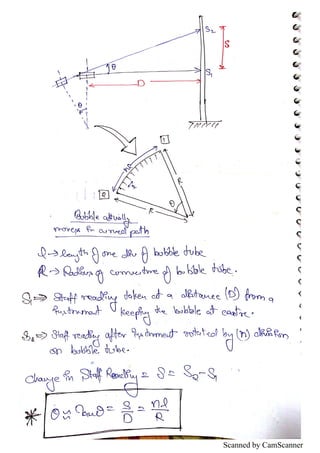 S2
S
θ
S1
D
θ
1
nl
R
l
θ
0
R
Bubble actually
moves in curved path
l → length of one div of bubble tube
R → Radius of curvature of bubble tube.
S1 ⇒ Staff reading taken at a distance (D) from a
instrument keeping the bubble at centre.
S2 ⇒ Staff reading after instrument rotated by (n) division
on bubble tube.
Change in Staff Reading = S = S2 - S1
* θ ≈ tanθ = S/D = nl/R
Scanned by CamScanner